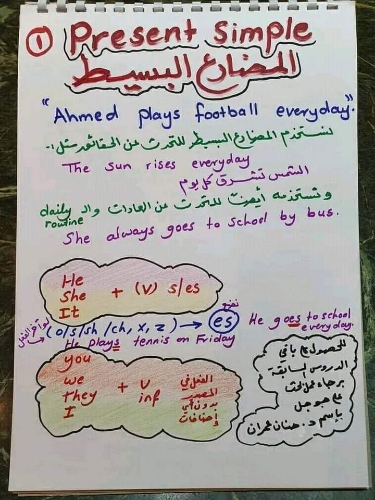 ① Present Simple
المضارع البسيط
"Ahmed plays football everyday."
نستخدم المضارع البسيط للتحدث عن الحقائق مثل:-
The sun rises everyday
الشمس تشرق كل يوم
ونستخدمه أيضا للتحدث عن العادات والـ daily routine
She always goes to school by bus.
He
She + (v) s/es
It
(o/s/sh/ch, x, z) → نضع es
He goes to school everyday.
He plays tennis on Friday
you
we
they + v inf
I
الفعل في
المصدر
بدون أي
إضافات
للحصول على باقي
الدروس السابقة
برجاء
على جوجل
بإسم د. حنان عمران